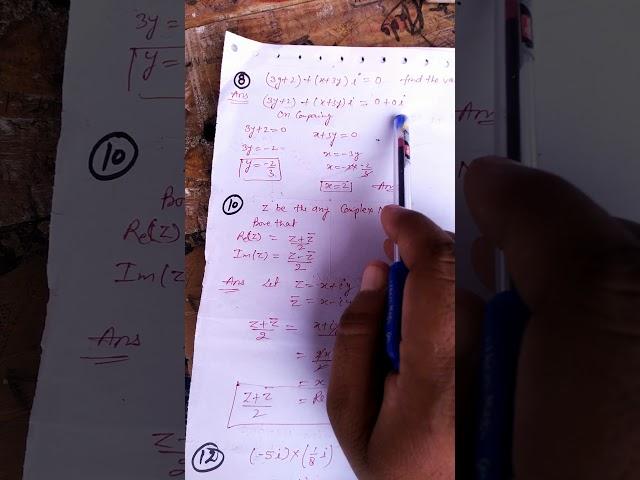 8 (3y+2)+(x+3y)i = 0 find the va
Ans (3y+2)+(x+3y)i = 0+0i
On Comparing
3y+2=0 x+3y=0
3y=-2 x=-3y
y=-2/3 x=-3×-2/3
x=2 Ans
10 Z be the any Complex N
Prove that
Re(z) = z+z̄/2
Im(z) = z-z̄/2
Ans Let z = x+iy
z̄ = x-iy
z+z̄/2 = x+iy
= 2x/2
= x
z+z̄/2 = Re
12 (-5i)×(1/8 i)